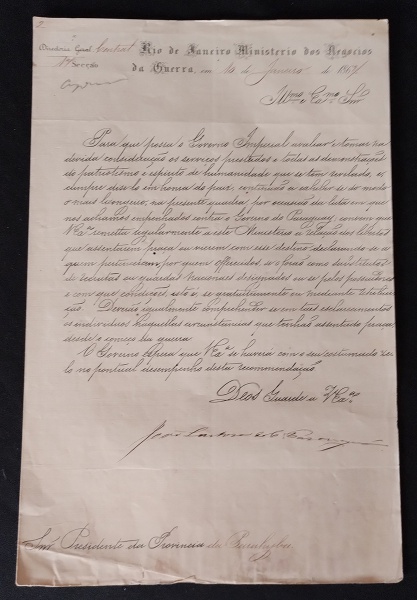 2.
Directoria Geral Central Rio de Janeiro Ministerio dos Negocios
1ª Secção da Guerra, em 10 de Janeiro de 1867
Illmo e Exmo Snr
Para que possa o Governo Imperial avaliar e tomar na
devida consideração os serviços prestados e todas as demonstrações
de patriotismo e espirito de humanidade que se tem revelado, e,
cumpre dizel-o em honra do paiz, continuão a revelar-se do modo
o mais lisongeiro, na presente quadra, por occasião da luta em que
nos achamos empenhados contra o Governo do Paraguay, convem que
V. Exª remetta regularmente a este Ministerio as relações dos libertos
que assentárem praça ou vierem com esse destino declarando-se a
quem pertencião, por quem offerecidos, e se forão como substitutos
de recrutas ou guardas nacionaes designados ou se pelos possuidores
e com que condições, isto é, se gratuitamente ou mediante retribui-
ção. Deverão igualmente comprehender-se em taes esclarecimentos
os individuos naquellas circunstancias que tenhão assentado praça
desde o começo da guerra.
O Governo espera que V. Exª se haverá com o seu costumado ze-
lo no pontual desempenho desta recommendação.
Deos Guarde a V. Exª
João Lustosa da Cª Paranaguá
Snr Presidente da Provincia da Parahyba